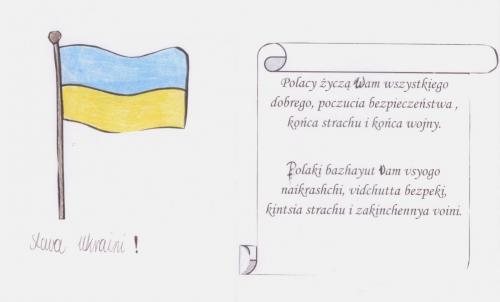 Sława Ukraini !
Polacy życzą Wam wszystkiego
dobrego, poczucia bezpieczeństwa ,
końca strachu i końca wojny.
Polaki bazhayut Vam vsyogo
naikrashchi, vidchutta bezpeki,
kintsia strachu i zakinchennya voini.